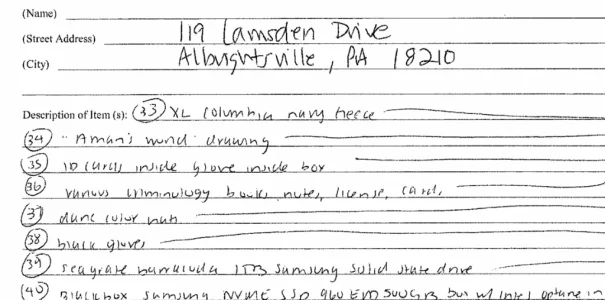 (Name)
(Street Address) 119 Lamsden Drive
(City) Albrightsville, PA 18210
Description of Item (s): (33) XL Columbia navy fleece
(34) "A man's mind" drawing
(35) ID cards inside glove inside box
(36) various criminology books, notes, license, card,
(37) dark color hat
(38) black gloves
(39) seagrate barracuda 1TB Samsung solid state drive
(40) black box Samsung NVME SSD 960 EVO 500GB box w/ intel optane in